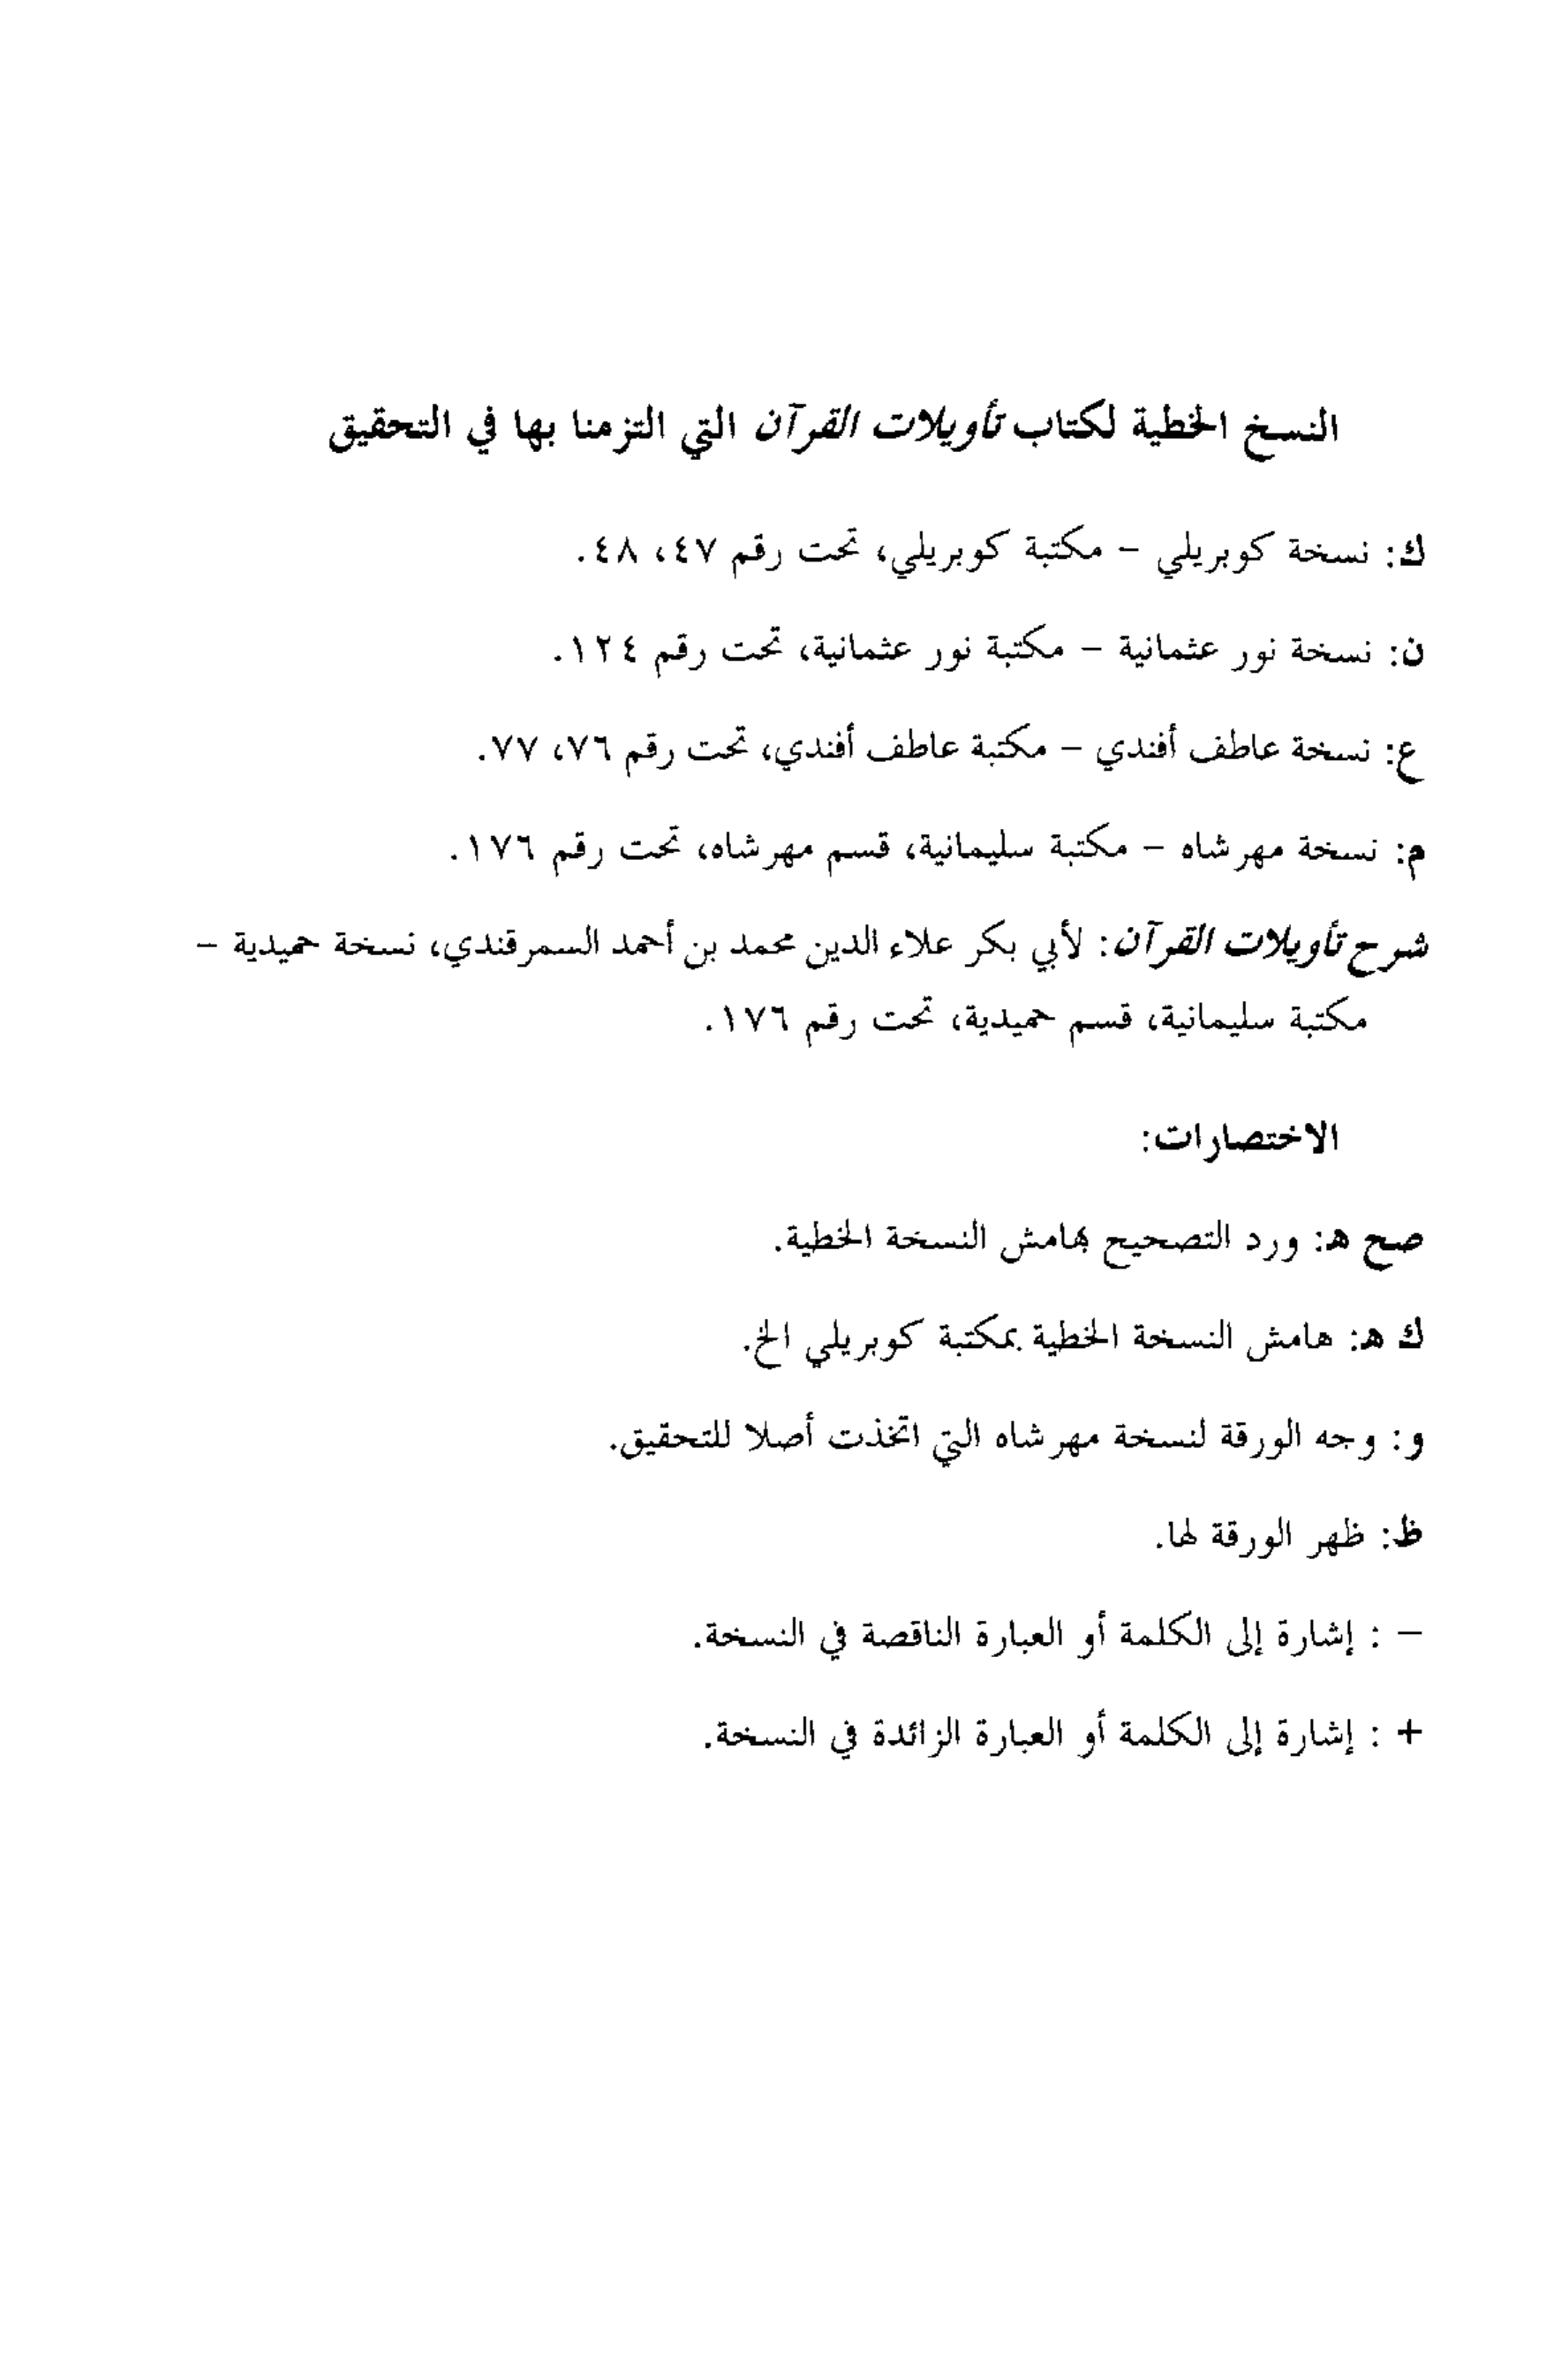 النسخ الخطية لكتاب تأويلات القرآن التي التزمنا بها في التحقيق
ك: نسخة كوبريلي – مكتبة كوبريلي، تحت رقم ٤٧، ٤٨.
ن: نسخة نور عثمانية – مكتبة نور عثمانية، تحت رقم ١٢٤.
ع: نسخة عاطف أفندي – مكتبة عاطف أفندي، تحت رقم ٧٦، ٧٧.
م: نسخة مهرشاه – مكتبة سليمانية، قسم مهرشاه، تحت رقم ١٧٦.
شرح تأويلات القرآن: لأبي بكر علاء الدين محمد بن أحمد السمرقندي، نسخة حميدية –
مكتبة سليمانية، قسم حميدية، تحت رقم ١٧٦.
الاختصارات:
صح ھ: ورد التصحيح بهامش النسخة الخطية.
ك ھ: هامش النسخة الخطية بمكتبة كوبريلي الخ.
و: وجه الورقة لنسخة مهرشاه التي اتخذت أصلا للتحقيق.
ظ: ظهر الورقة لها.
– : إشارة إلى الكلمة أو العبارة الناقصة في النسخة.
+ : إشارة إلى الكلمة أو العبارة الزائدة في النسخة.